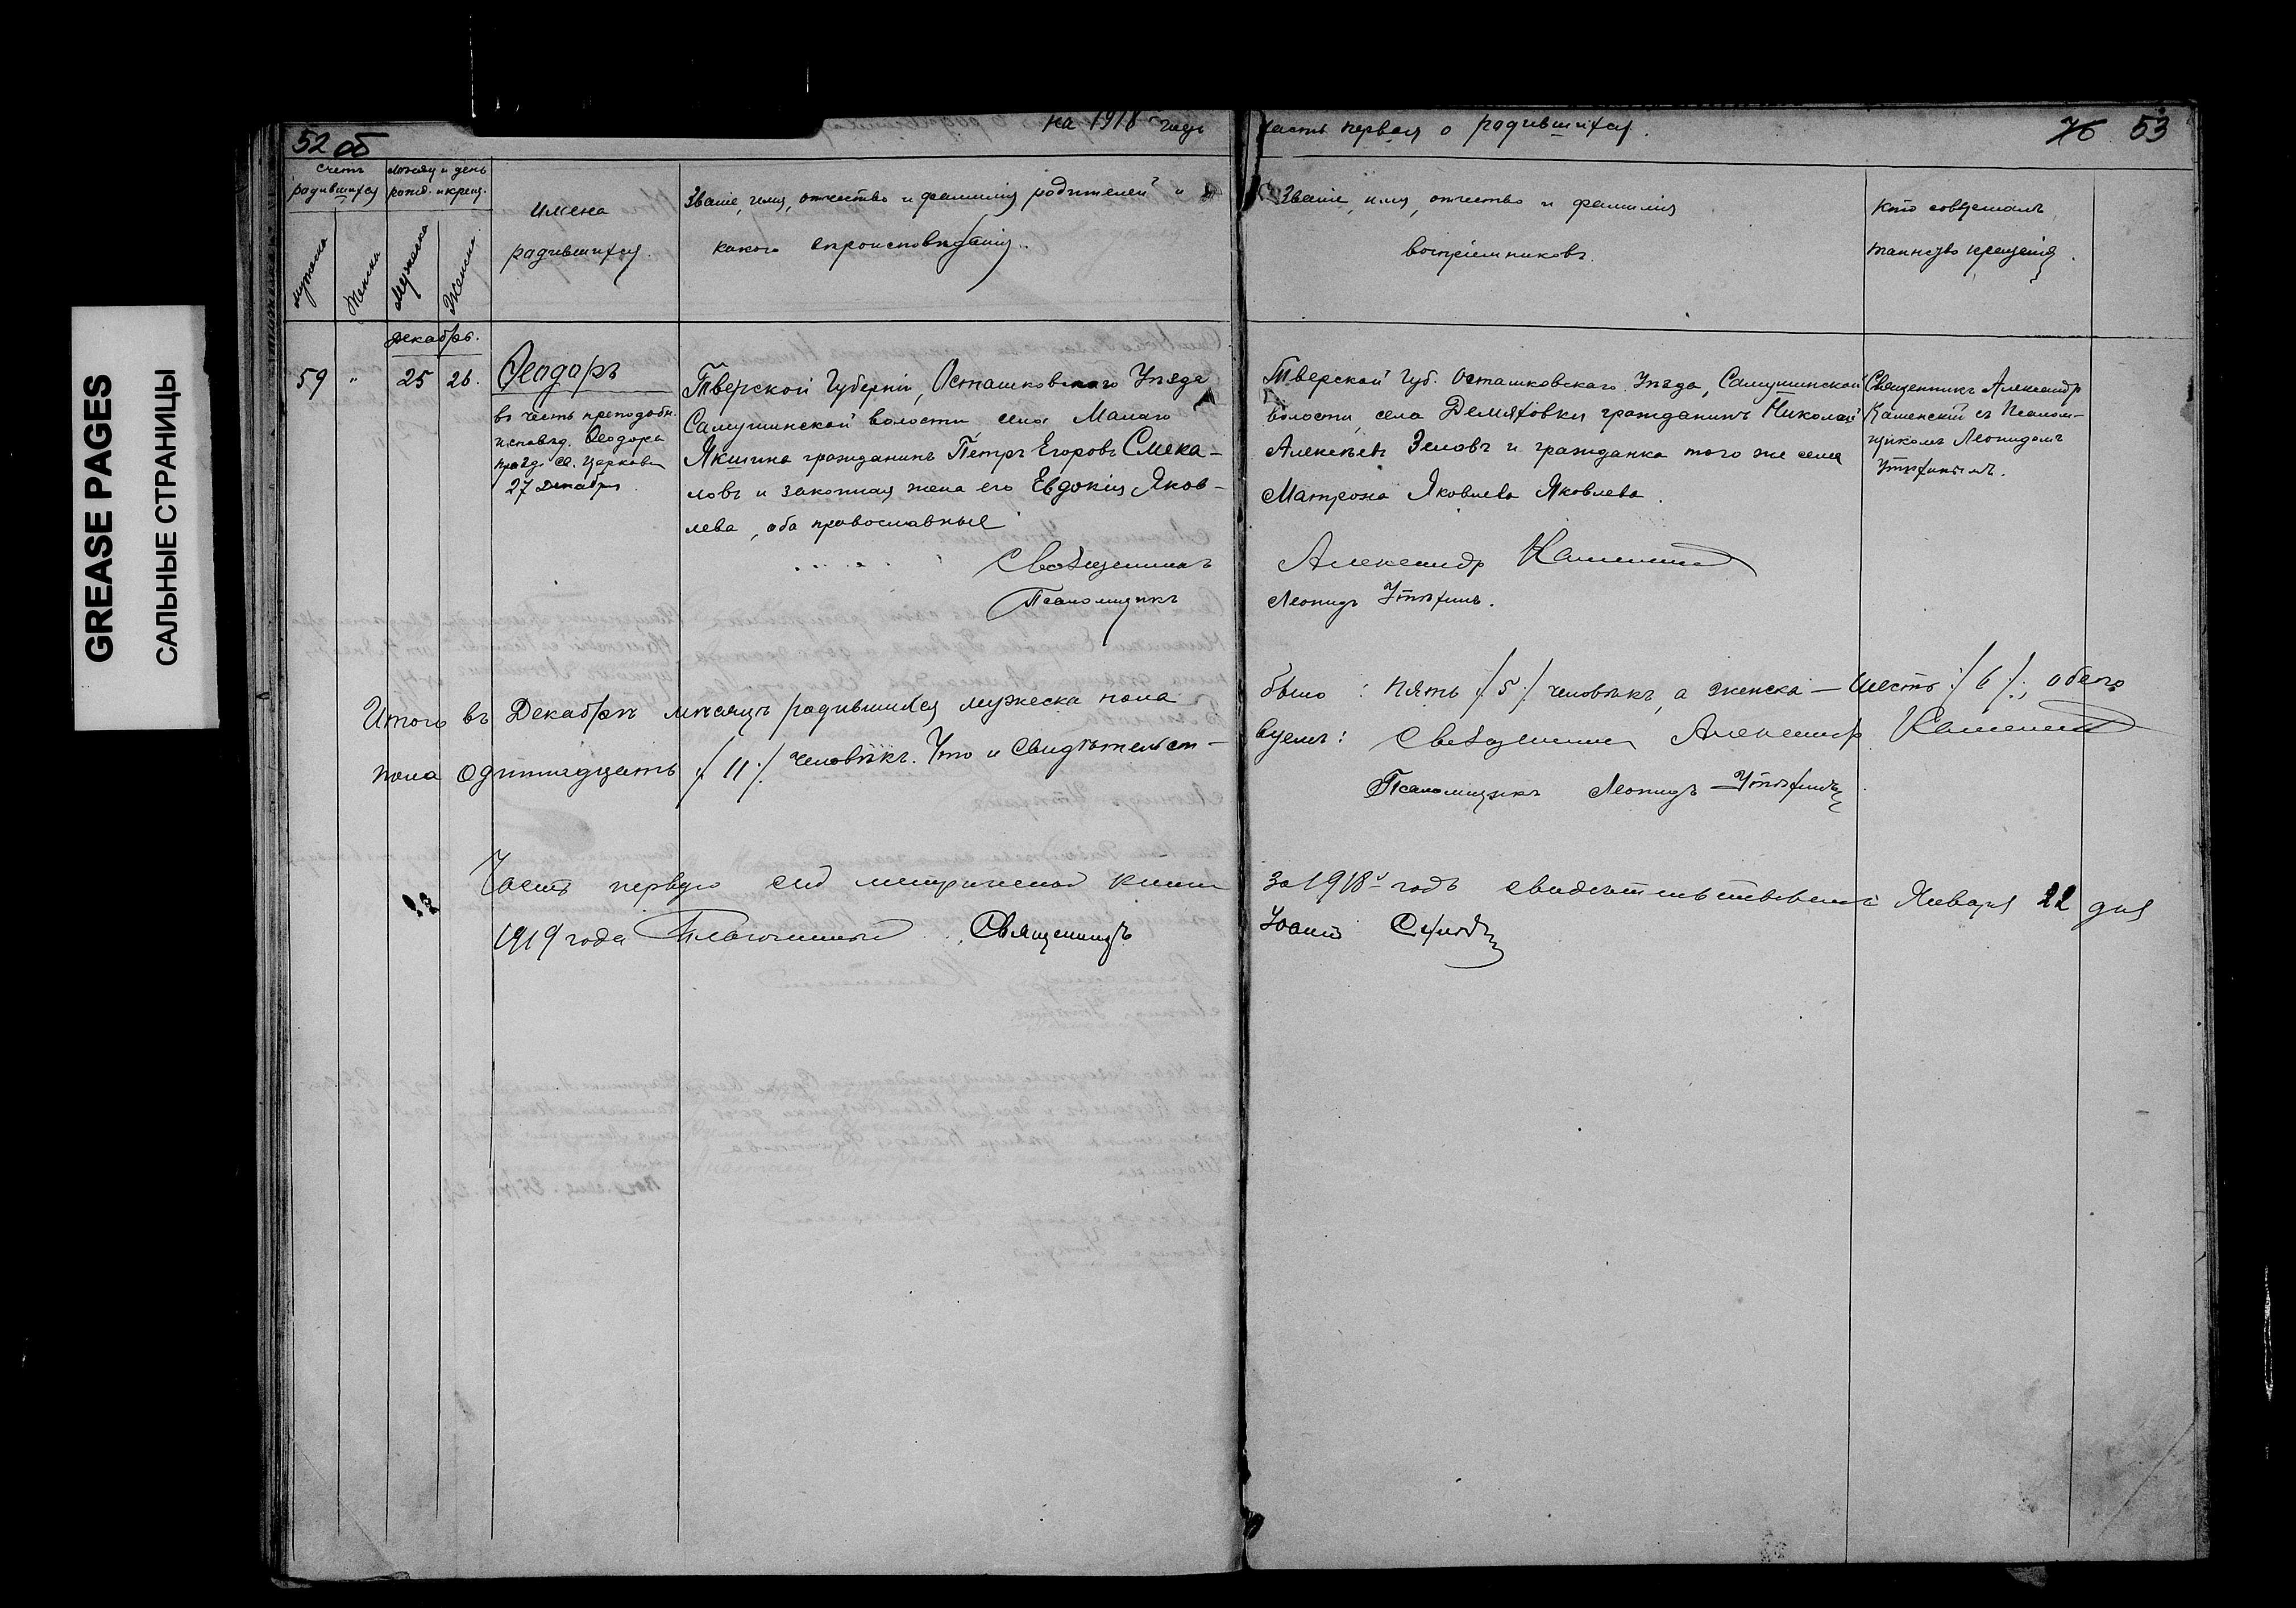 GREASE PAGES
САЛЬНЫЕ СТРАНИЦЫ
52 об
на 1918 годъ
часть первая о родившихся.
76 53
счетъ родившихся
мѣсяцъ и день рожд. и крещ.
мужеска
женска
мужеска
женска
имена
родившихся.
Званіе, имя, отчество и фамилія родителей и
какого вѣроисповѣданія.
Званіе, имя, отчество и фамилія
воспріемниковъ.
кто совершалъ
таинство крещенія.
декабрь.
59 " 25 26.
Ѳеодоръ
въ честь преподобн.
исповѣд. Ѳеодора
празд. св. Церковью
27 Декабря.
Тверской Губерніи, Осташковскаго Уѣзда
Самушинской волости села Малаго
Якшина гражданинъ Петръ Егоровъ Смека-
ловъ и законная жена его Евдокія Яков-
лева, оба православные
Священникъ
Псаломщикъ
Тверской Губ. Осташковскаго Уѣзда, Самушинской
волости, села Демяховки гражданинъ Николай
Алексѣевъ Зеловъ и гражданка того же села
Матрона Яковлева Яковлева.
Александръ Каменскій
Леонидъ Утѣхинъ.
Священникъ Александр
Каменскій съ Псалом-
щикомъ Леонидомъ
Утѣхинымъ.
Итого въ Декабрѣ мѣсяцѣ родившихся мужеска пола
было: пять /:5:/ человѣкъ, а женска — шесть /:6:/, обоего
пола одиннадцать /:11:/ человѣкъ. Что и свидѣтельст-
вуемъ: Священникъ Александр Каменскій
Псаломщикъ Леонидъ Утѣхинъ
Часть первую сей метрической книги
за 1918й годъ свидѣтельствовалъ Января 22 дня
1919 года Благочинный Священникъ
Іоаннъ